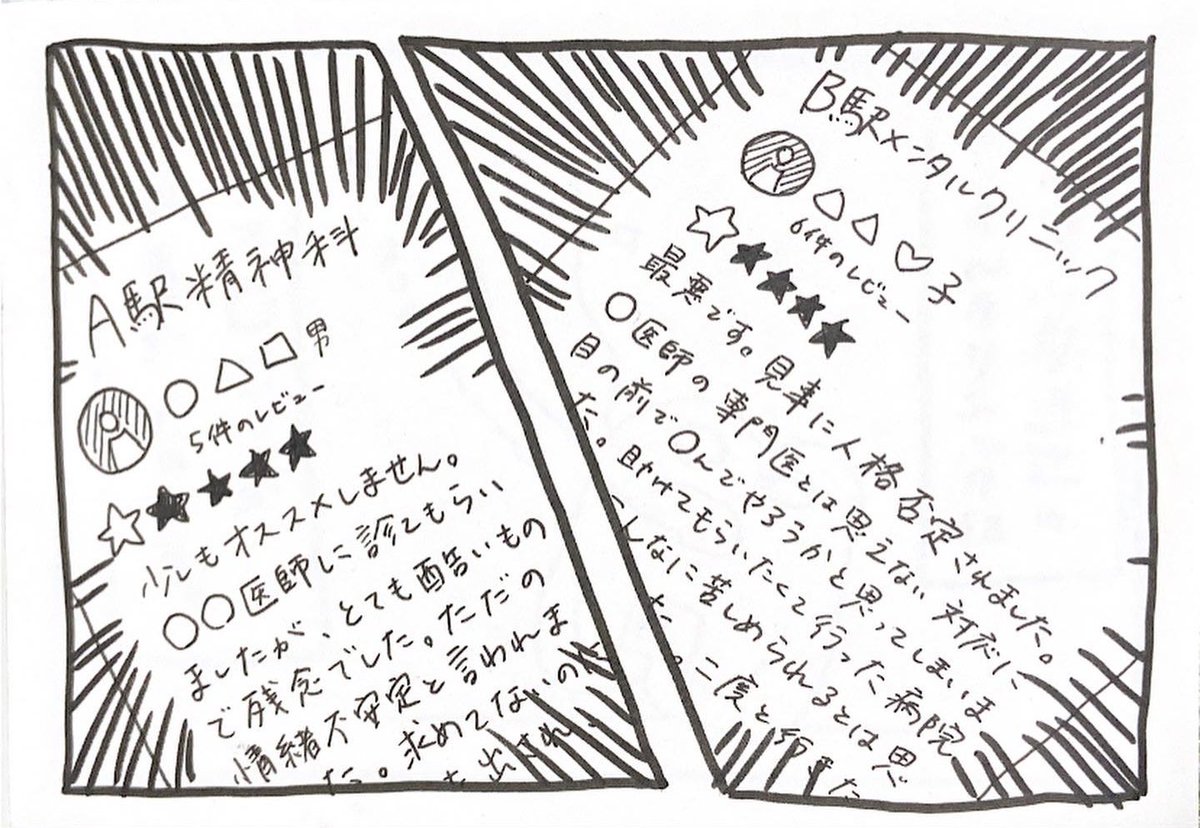 A駅精神科
○△□男
5件のレビュー
☆★★★★
少しもオススメしません。
○○医師に診てもらい
ましたが、とても酷いもの
で残念でした。ただの
情緒不安定と言われま
た。求めてないのに
出され
B駅メンタルクリニック
△△♡子
61件のレビュー
☆★★★★
最悪です。見事に人格否定されました。
○医師の専門医とは思えない対応に
目の前で○んでやろうかと思ってしまいま
た。助けてもらいたくて行った病院
こんなに苦しめられるとは思
た。二度と行きた